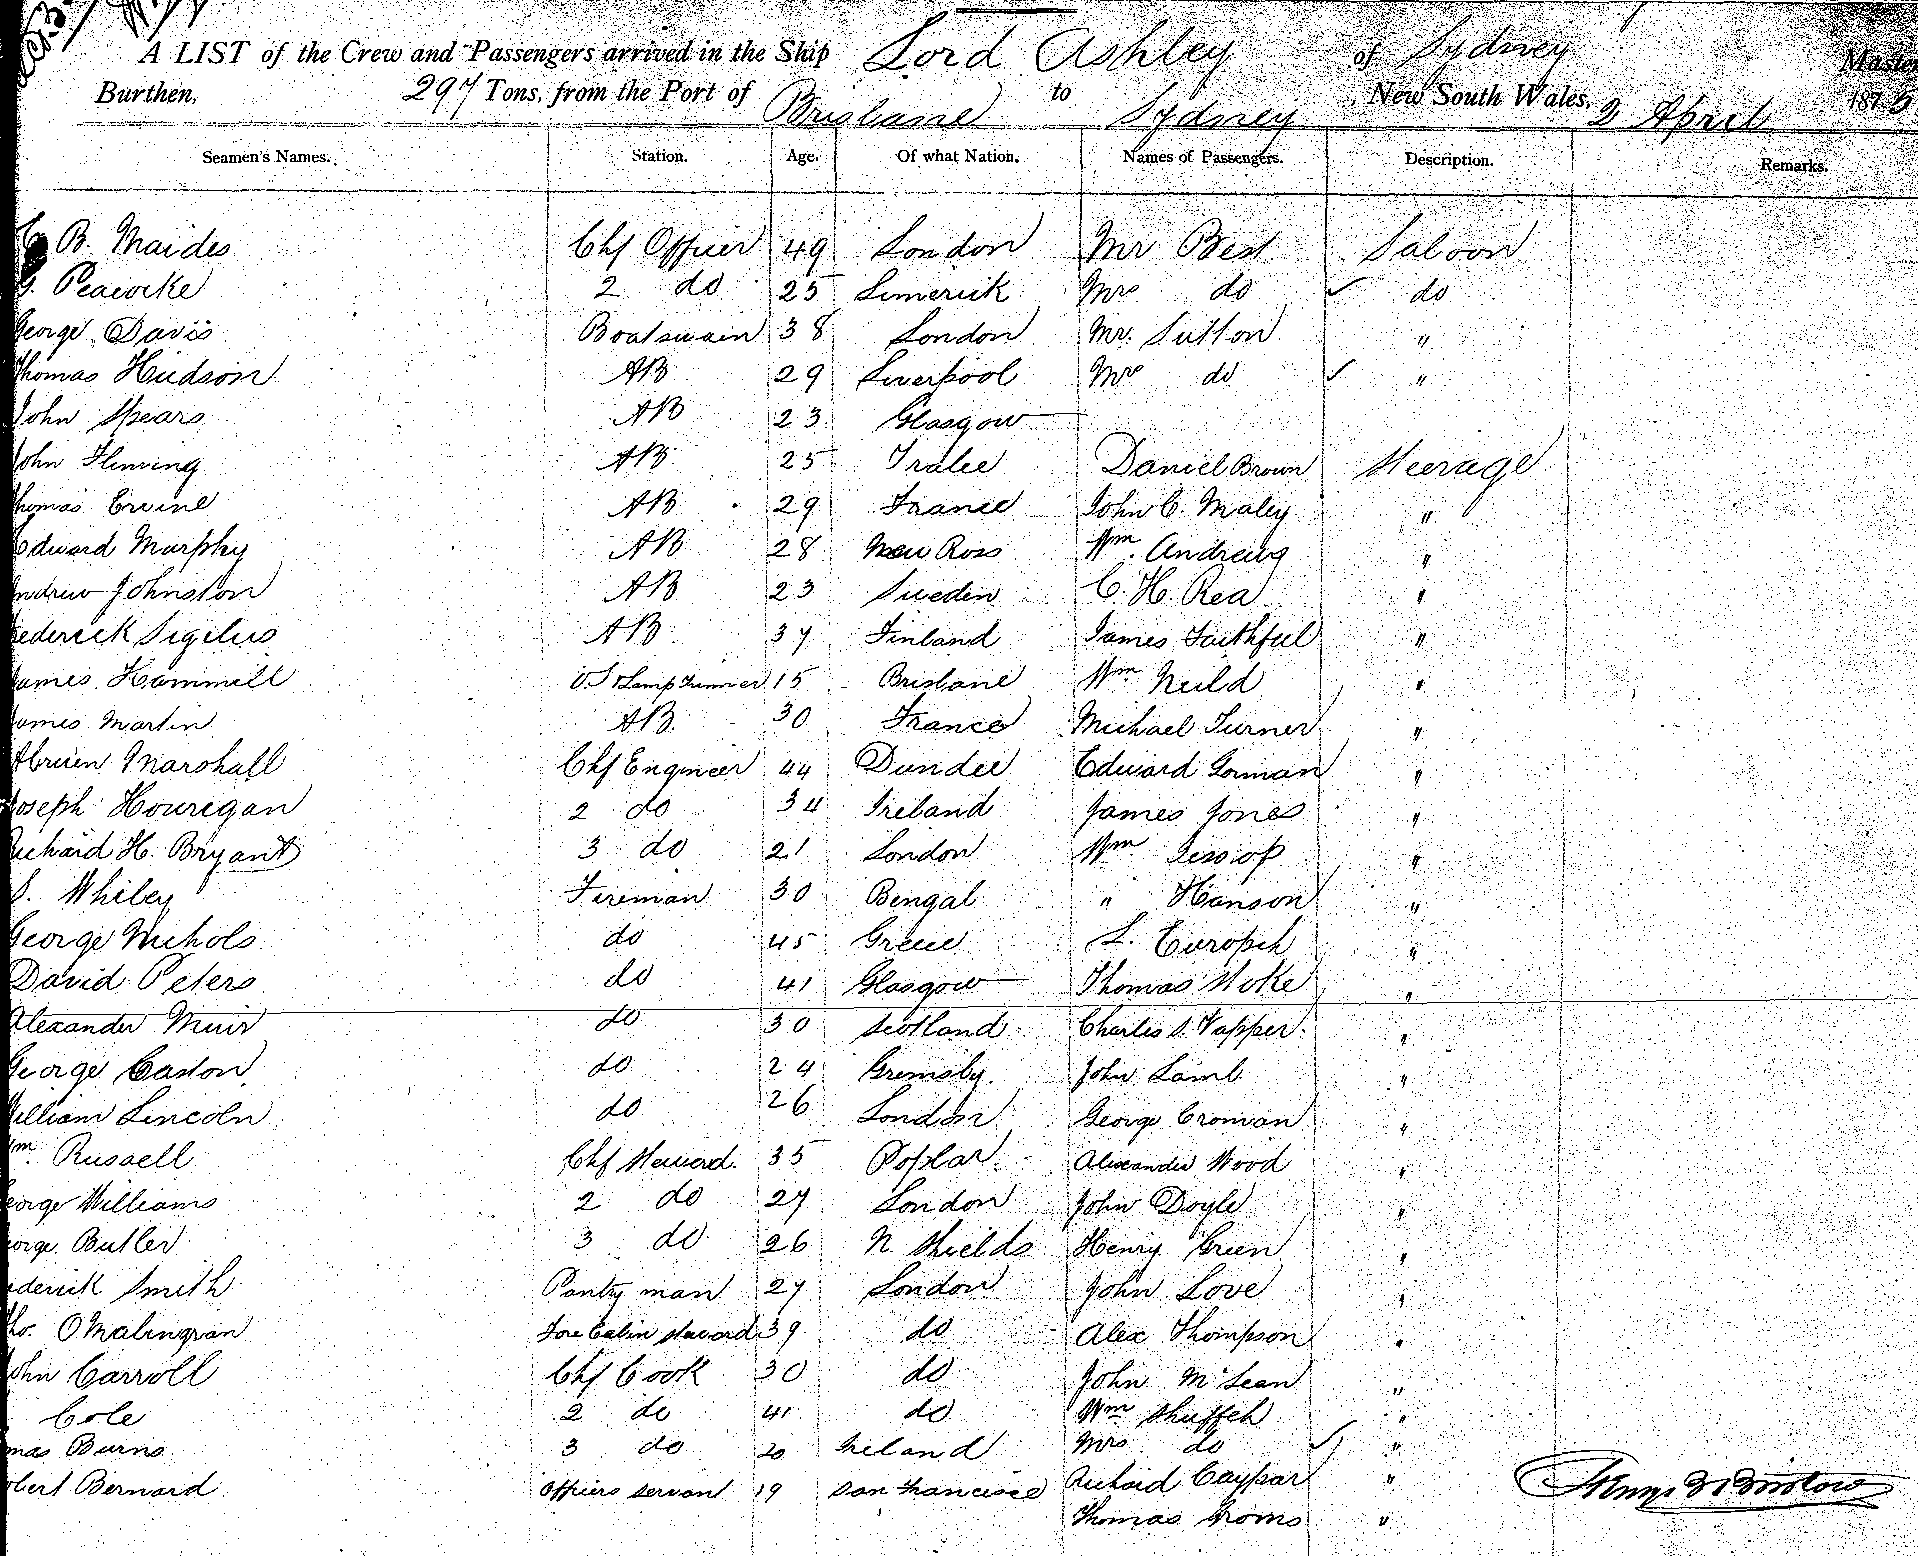 A LIST of the Crew and Passengers arrived in the Ship Lord Ashley of Sydney Master
Burthen, 297 Tons, from the Port of Brisbane to Sydney, New South Wales, 2 April 187
Seamen's Names. Station. Age. Of what Nation. Names of Passengers. Description. Remarks.
B. Maides Chf Officer 49 London Mr Best Saloon
G. Peacocke 2 do 25 Limerick Mrs do ✓ do
George Davis Boatswain 38 London Mr. Sutton "
Thomas Hudson AB 29 Liverpool Mrs do ✓ "
John Spears AB 23 Glasgow
John Fleming AB 25 Tralee Daniel Brown Steerage
Thomas Ervine AB 29 France John C. Maley "
Edward Murphy AB 28 New Ross Wm. Andrews "
Andrew Johnston AB 23 Sweden C. H. Rea "
ederick Sigilus AB 37 Finland James Faithful "
James Hammill 15 Brisbane Wm Neild "
James Martin AB 30 France Michael Turner "
Marshall Chf Engineer 44 Dundee Edward Gorman "
Joseph Hourigan 2 do 34 Ireland James Jones "
Richard H. Bryant 3 do 21 London Wm Jessop "
S. Whiley Fireman 30 Bengal " Hanson "
George Nichols do 45 Greece L. "
David Peters do 41 Glasgow Thomas Stoke "
Alexander Muir do 30 Scotland Charles S. Tapper "
George Easton do 24 Gremsby John Lamb "
William Lincoln do 26 London George Croman "
Wm. Russell Chf Steward. 35 Poplar Alexander Wood "
eorge Williams 2 do 27 London John Doyle "
eorge Butler 3 do 26 N. Shields Henry Green "
ederick Smith Pantry man 27 London John Love "
Tho. OMalingran Fore Cabin steward 39 do Alex Thompson "
John Carroll Chf Cook 30 do John McLean "
Cole 2 do 41 do Wm "
mas Burns 3 do 20 Ireland Mrs do ✓ "
obert Bernard Officers servant 19 San Francisco Richard Caypar "
Thomas Groms "